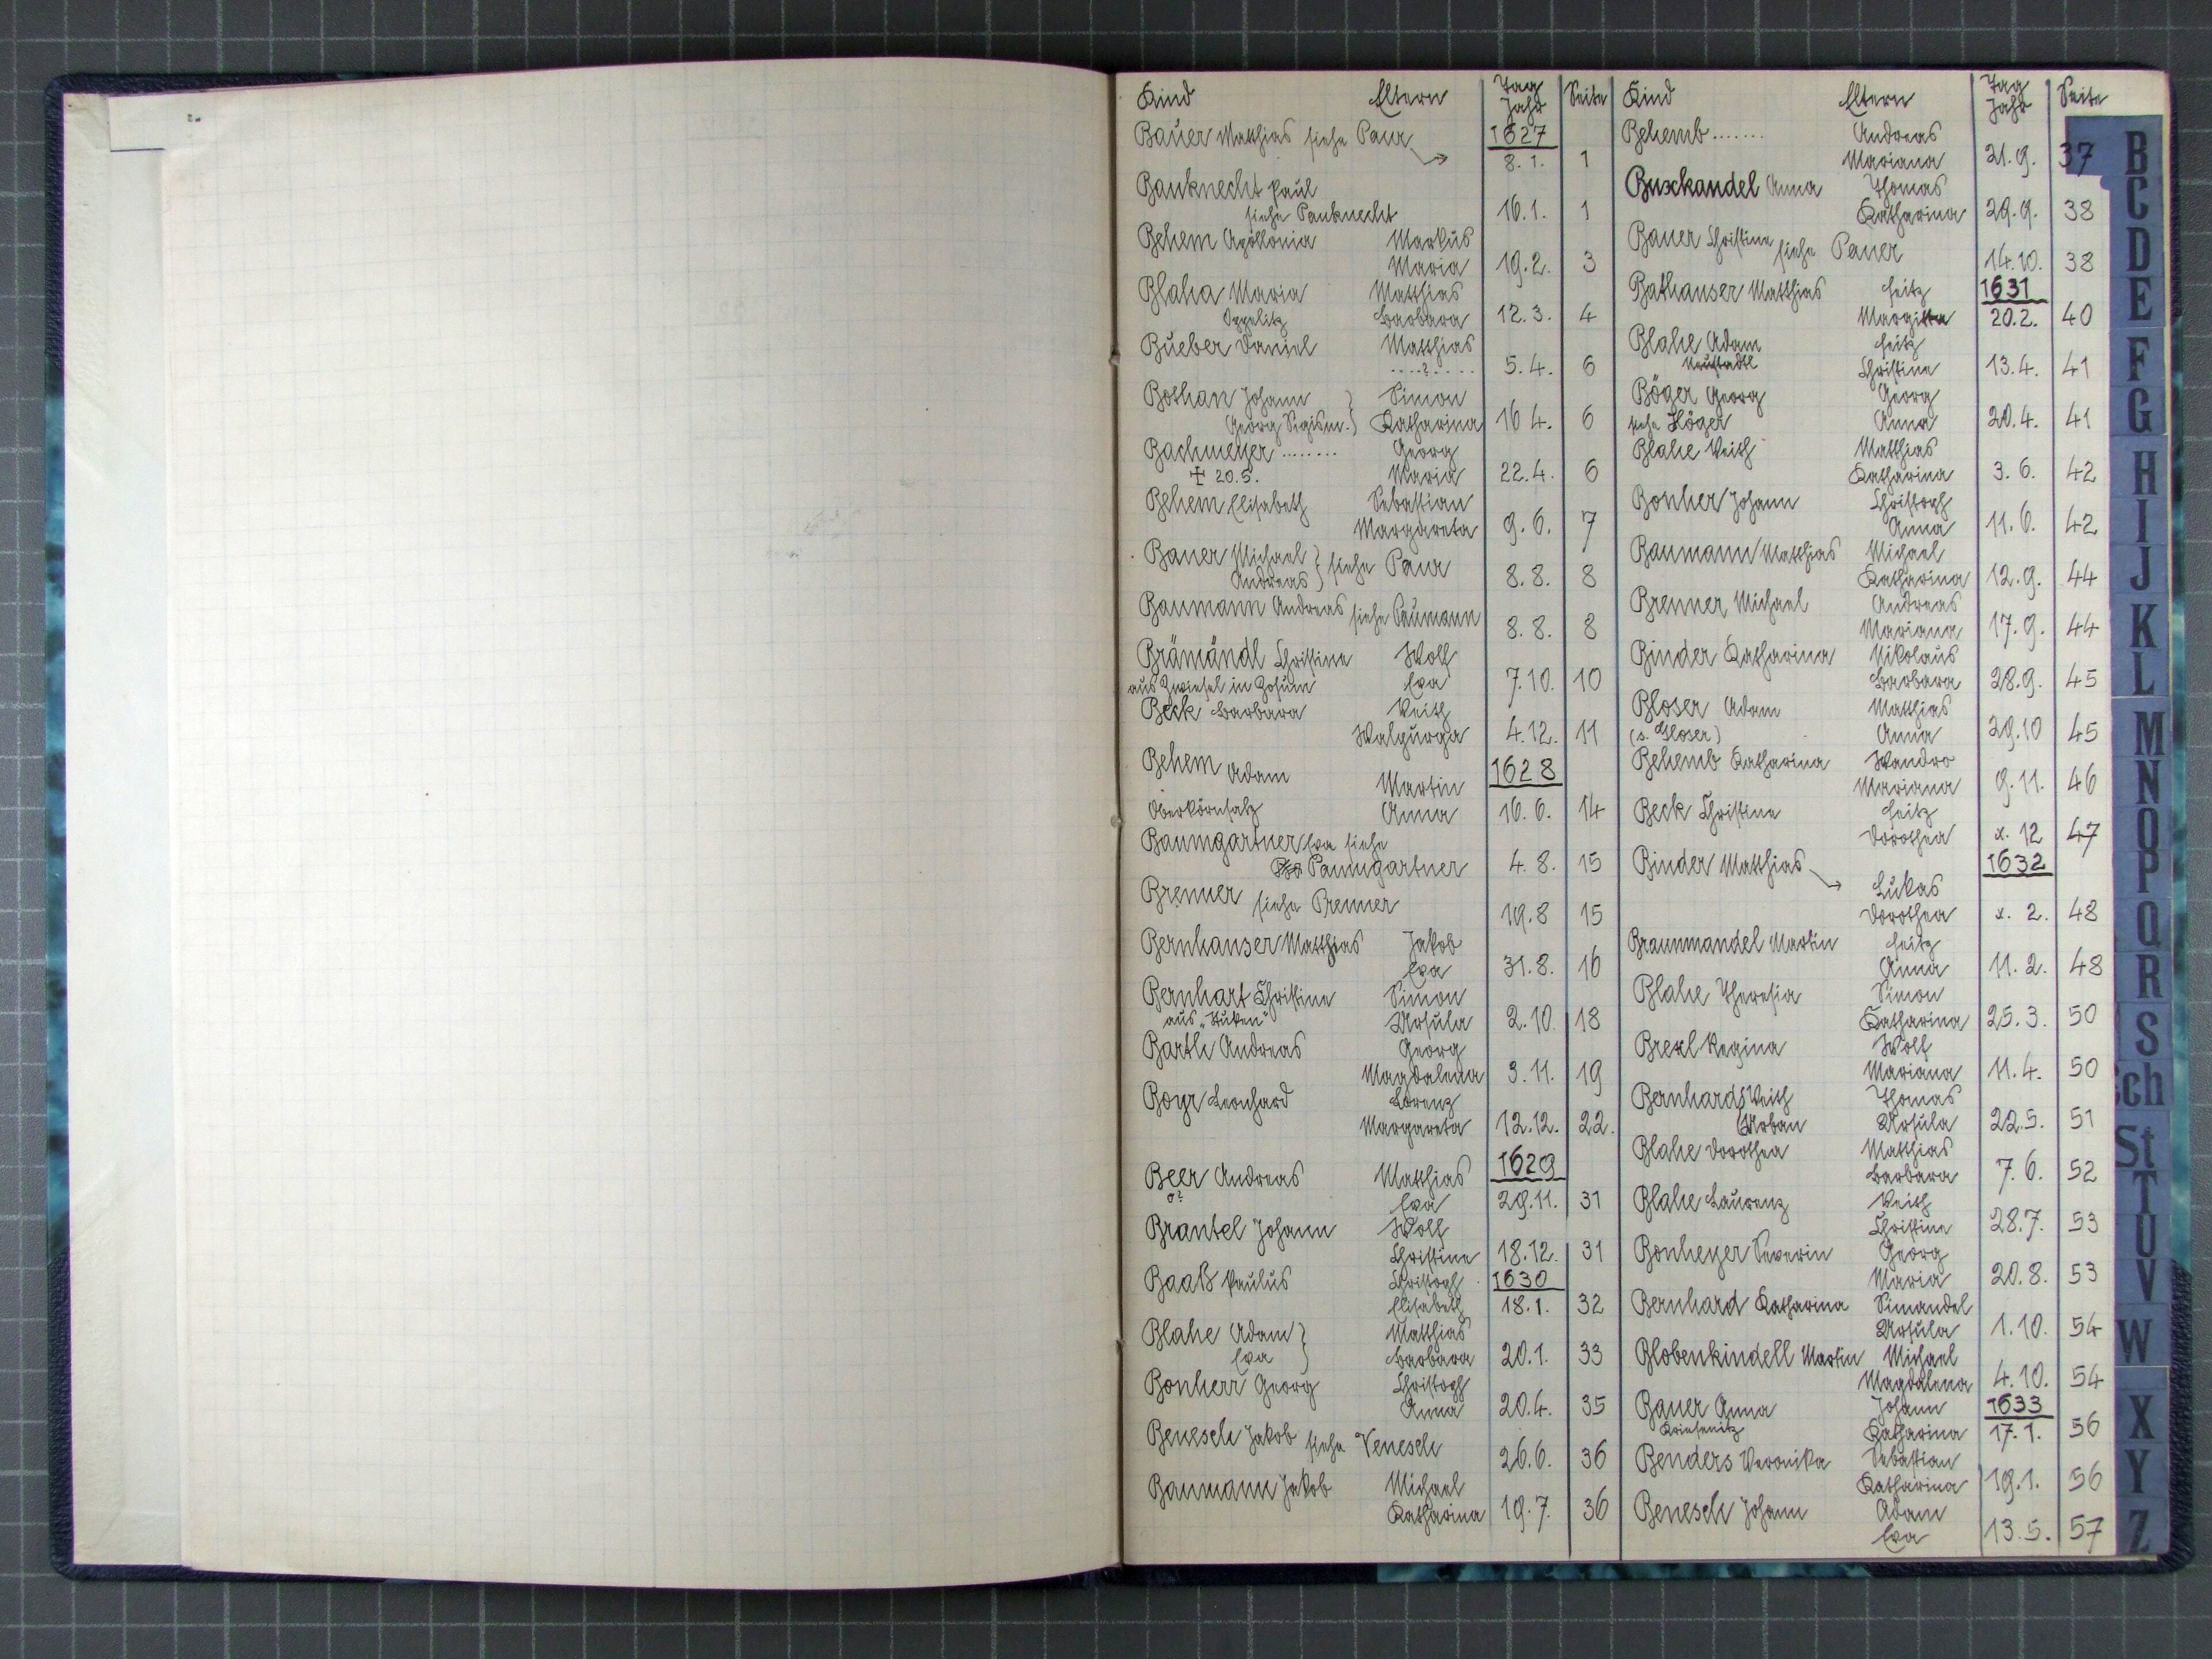 Kind Eltern Tag Jahr Seite
Bauer Matthias siehe Paur 1627
8.1. 1
Bauknecht Paul
siehe Pauknecht 16.1. 1
Behem Apollonia Markus
Maria 19.2. 3
Blaha Maria Matthias
Oppelitz Barbara 12.3. 4
Bueber Daniel Matthias
....?.... 5.4. 6
Bothan Johann } Simon
Georg Sigism. } Katharina 16 4. 6
Bachmeyer ........ Georg
† 20.5. Maria 22.4. 6
Behem Elisabeth Sebastian
Margareta 9.6. 7
Bauer Michael } siehe Paur
Andreas } 8.8. 8
Baumann Andreas siehe Paumann
8.8. 8
Brämändl Christina Wolf
aus Zwiesel in Eva 7.10. 10
Beck Barbara Veith
Walpurga 4.12. 11
Behem Adam Martin 1628
Oberkörnsalz Anna 16.6. 14
Baumgartner Eva siehe
Paumgartner 4.8. 15
Brenner siehe Prenner
19.8 15
Bernhauser Matthias Jakob
Eva 31.8. 16
Bernhart Christina Simon
aus "Stuken" Ursula 2.10. 18
Barth Andreas Georg
Magdalena 3.11. 19
Boyr Leonhard Lorenz
Margareta 12.12. 22.
1629
Beer Andreas Matthias
o? Eva 29.11. 31
Brantel Johann Wolf
Christine 18.12. 31
Baaß Paulus Christoph 1630
Elisabeth 18.1. 32
Blahe Adam } Matthias
Eva } Barbara 20.1. 33
Bonherr Georg Christoph
Anna 20.4. 35
Benesch Jakob siehe Venesch
26.6. 36
Baumann Jakob Michael
Katharina 19.7. 36
Kind Eltern Tag Jahr Seite
Behemb ....... Andreas
Mariana 21.9. 37
Buxkandel Anna Thomas
Katharina 29.9. 38
Bauer Christine siehe Pauer
14.10. 38
Bathauser Matthias Veitz 1631
20.2. 40
Blahe Adam Veitz
Neustadtl Christine 13.4. 41
Böger Georg Georg
siehe Höger Anna 20.4. 41
Blahe Veith Matthias
Katharina 3.6. 42
Bonher Johann Christoph
Anna 11.6. 42
Baumann Matthias Michael
Katharina 12.9. 44
Brenner Michael Andreas
Mariana 17.9. 44
Binder Katharina Nikolaus
Barbara 28.9. 45
Bloser Adam Matthias
(s. Gloser) Anna 29.10 45
Behemb Katharina Wandro
Mariana 9.11. 46
Beck Christine Veitz
Dorothea x.12 47
Binder Matthias 1632
Lukas
Dorothea x.2. 48
Braunmandel Martin Veitz
Anna 11.2. 48
Blahe Theresia Simon
Katharina 25.3. 50
Brexl Regina Wolf
Mariana 11.4. 50
Bernhards Veith Thomas
Urban Ursula 22.5. 51
Blahe Dorothea Matthias
Barbara 7.6. 52
Blahe Laurenz Veith
Christine 28.7. 53
Bonheyer Severin Georg
Maria 20.8. 53
Bernhard Katharina Simandel
Ursula 1.10. 54
Blobenkindell Martin Michael
Magdalena 4.10. 54
Bauer Anna Johann 1633
Kriesenitz Katharina 17.1. 56
Benders Veronika Sebastian
Katharina 19.1. 56
Benesch Johann Adam
Eva 13.5. 57
B
C
D
E
F
G
H
I
J
K
L
M
N
O
P
Q
R
S
Sch
St
T
U
V
W
X
Y
Z